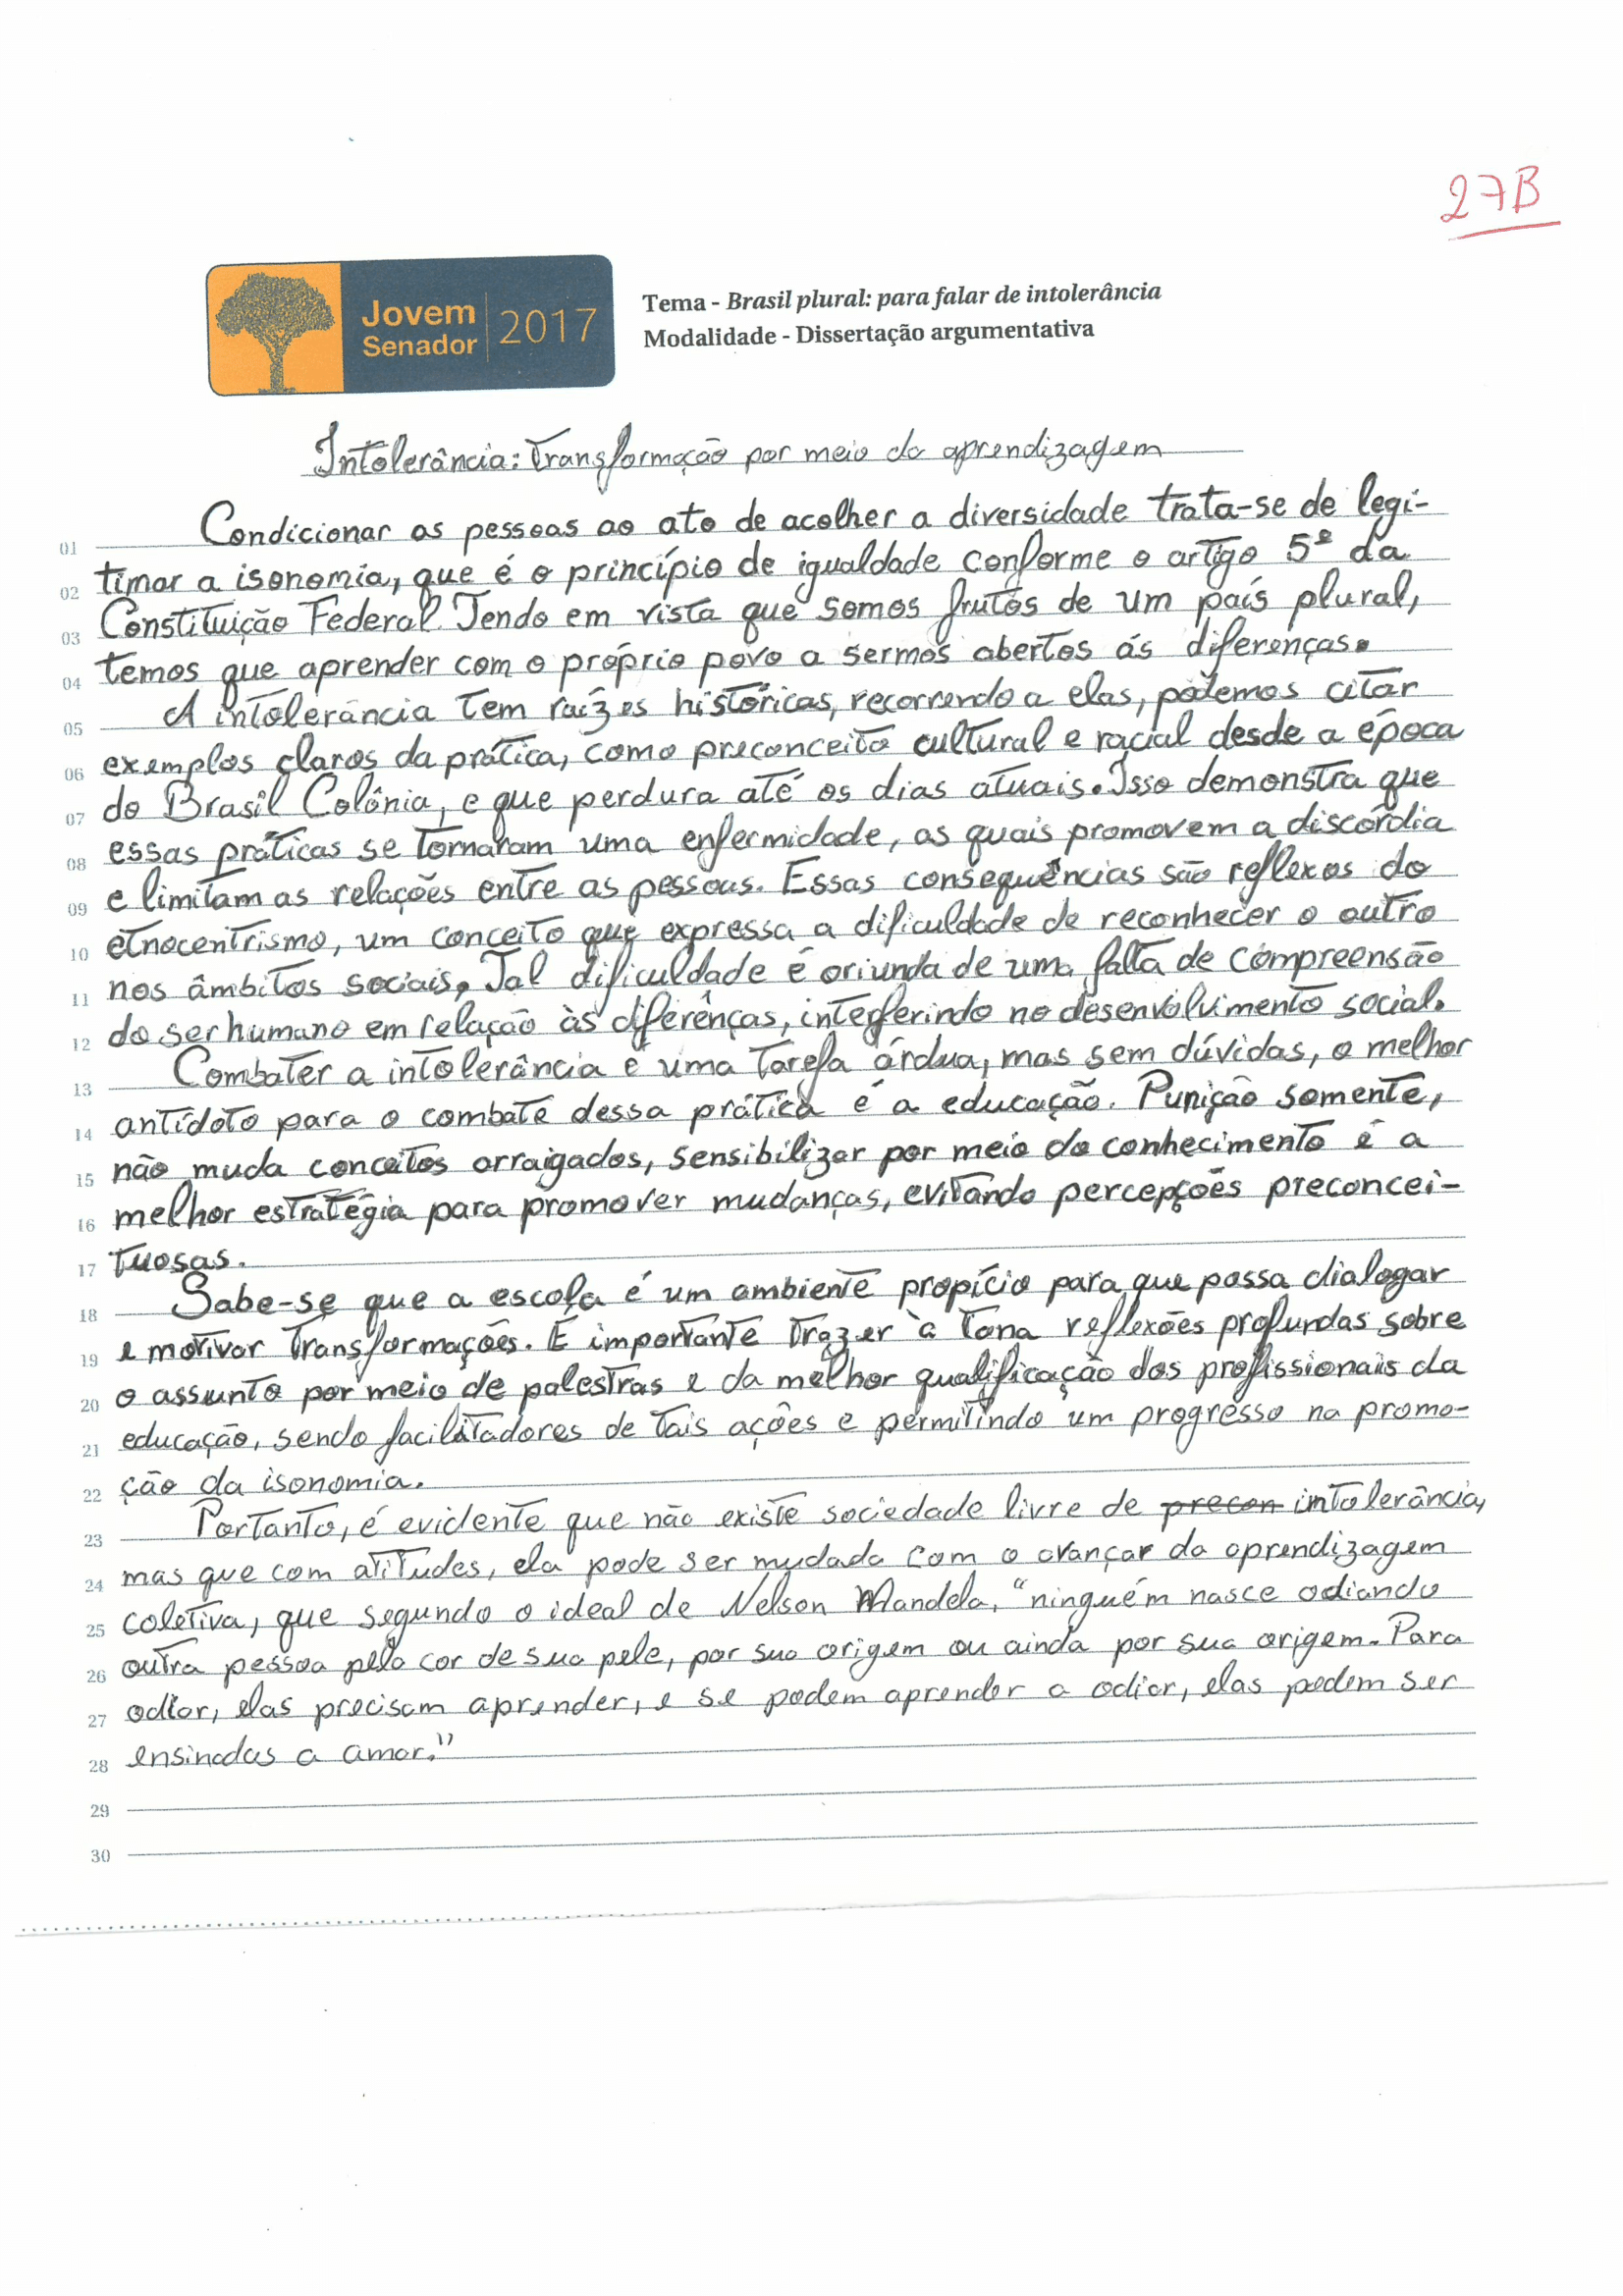 27B
Jovem
Senador
2017
Tema - Brasil plural: para falar de intolerância
Modalidade - Dissertação argumentativa
Intolerância: Transformação por meio da aprendizagem
01 Condicionar as pessoas ao ato de acolher a diversidade trata-se de legi-
02 timar a isonomia, que é o princípio de igualdade conforme o artigo 5º da
03 Constituição Federal. Tendo em vista que somos frutos de um país plural,
04 temos que aprender com o próprio povo a sermos abertos ás diferenças.
05 A intolerância tem raízes históricas, recorrendo a elas, podemos citar
06 exemplos claros da prática, como preconceito cultural e racial desde a época
07 do Brasil Colônia, e que perdura até os dias atuais. Isso demonstra que
08 essas práticas se tornaram uma enfermidade, as quais promovem a discórdia
09 e limitam as relações entre as pessoas. Essas consequências são reflexos do
10 etnocentrismo, um conceito que expressa a dificuldade de reconhecer o outro
11 nos âmbitos sociais. Tal dificuldade é oriunda de uma falta de compreensão
12 do ser humano em relação às diferenças, interferindo no desenvolvimento social.
13 Combater a intolerância é uma tarefa árdua, mas sem dúvidas, o melhor
14 antídoto para o combate dessa prática é a educação. Punição somente,
15 não muda conceitos arraigados, sensibilizar por meio do conhecimento é a
16 melhor estratégia para promover mudanças, evitando percepções preconcei-
17 tuosas.
18 Sabe-se que a escola é um ambiente propício para que possa dialogar
19 e motivar transformações. É importante trazer à tona reflexões profundas sobre
20 o assunto por meio de palestras e da melhor qualificação dos profissionais da
21 educação, sendo facilitadores de tais ações e permitindo um progresso na promo-
22 ção da isonomia.
23 Portanto, é evidente que não existe sociedade livre de precon intolerância,
24 mas que com atitudes, ela pode ser mudada com o avançar da aprendizagem
25 coletiva, que segundo o ideal de Nelson Mandela, "ninguém nasce odiando
26 outra pessoa pela cor de sua pele, por sua origem ou ainda por sua origem. Para
27 odiar, elas precisam aprender, e se podem aprender a odiar, elas podem ser
28 ensinadas a amar."
29
30